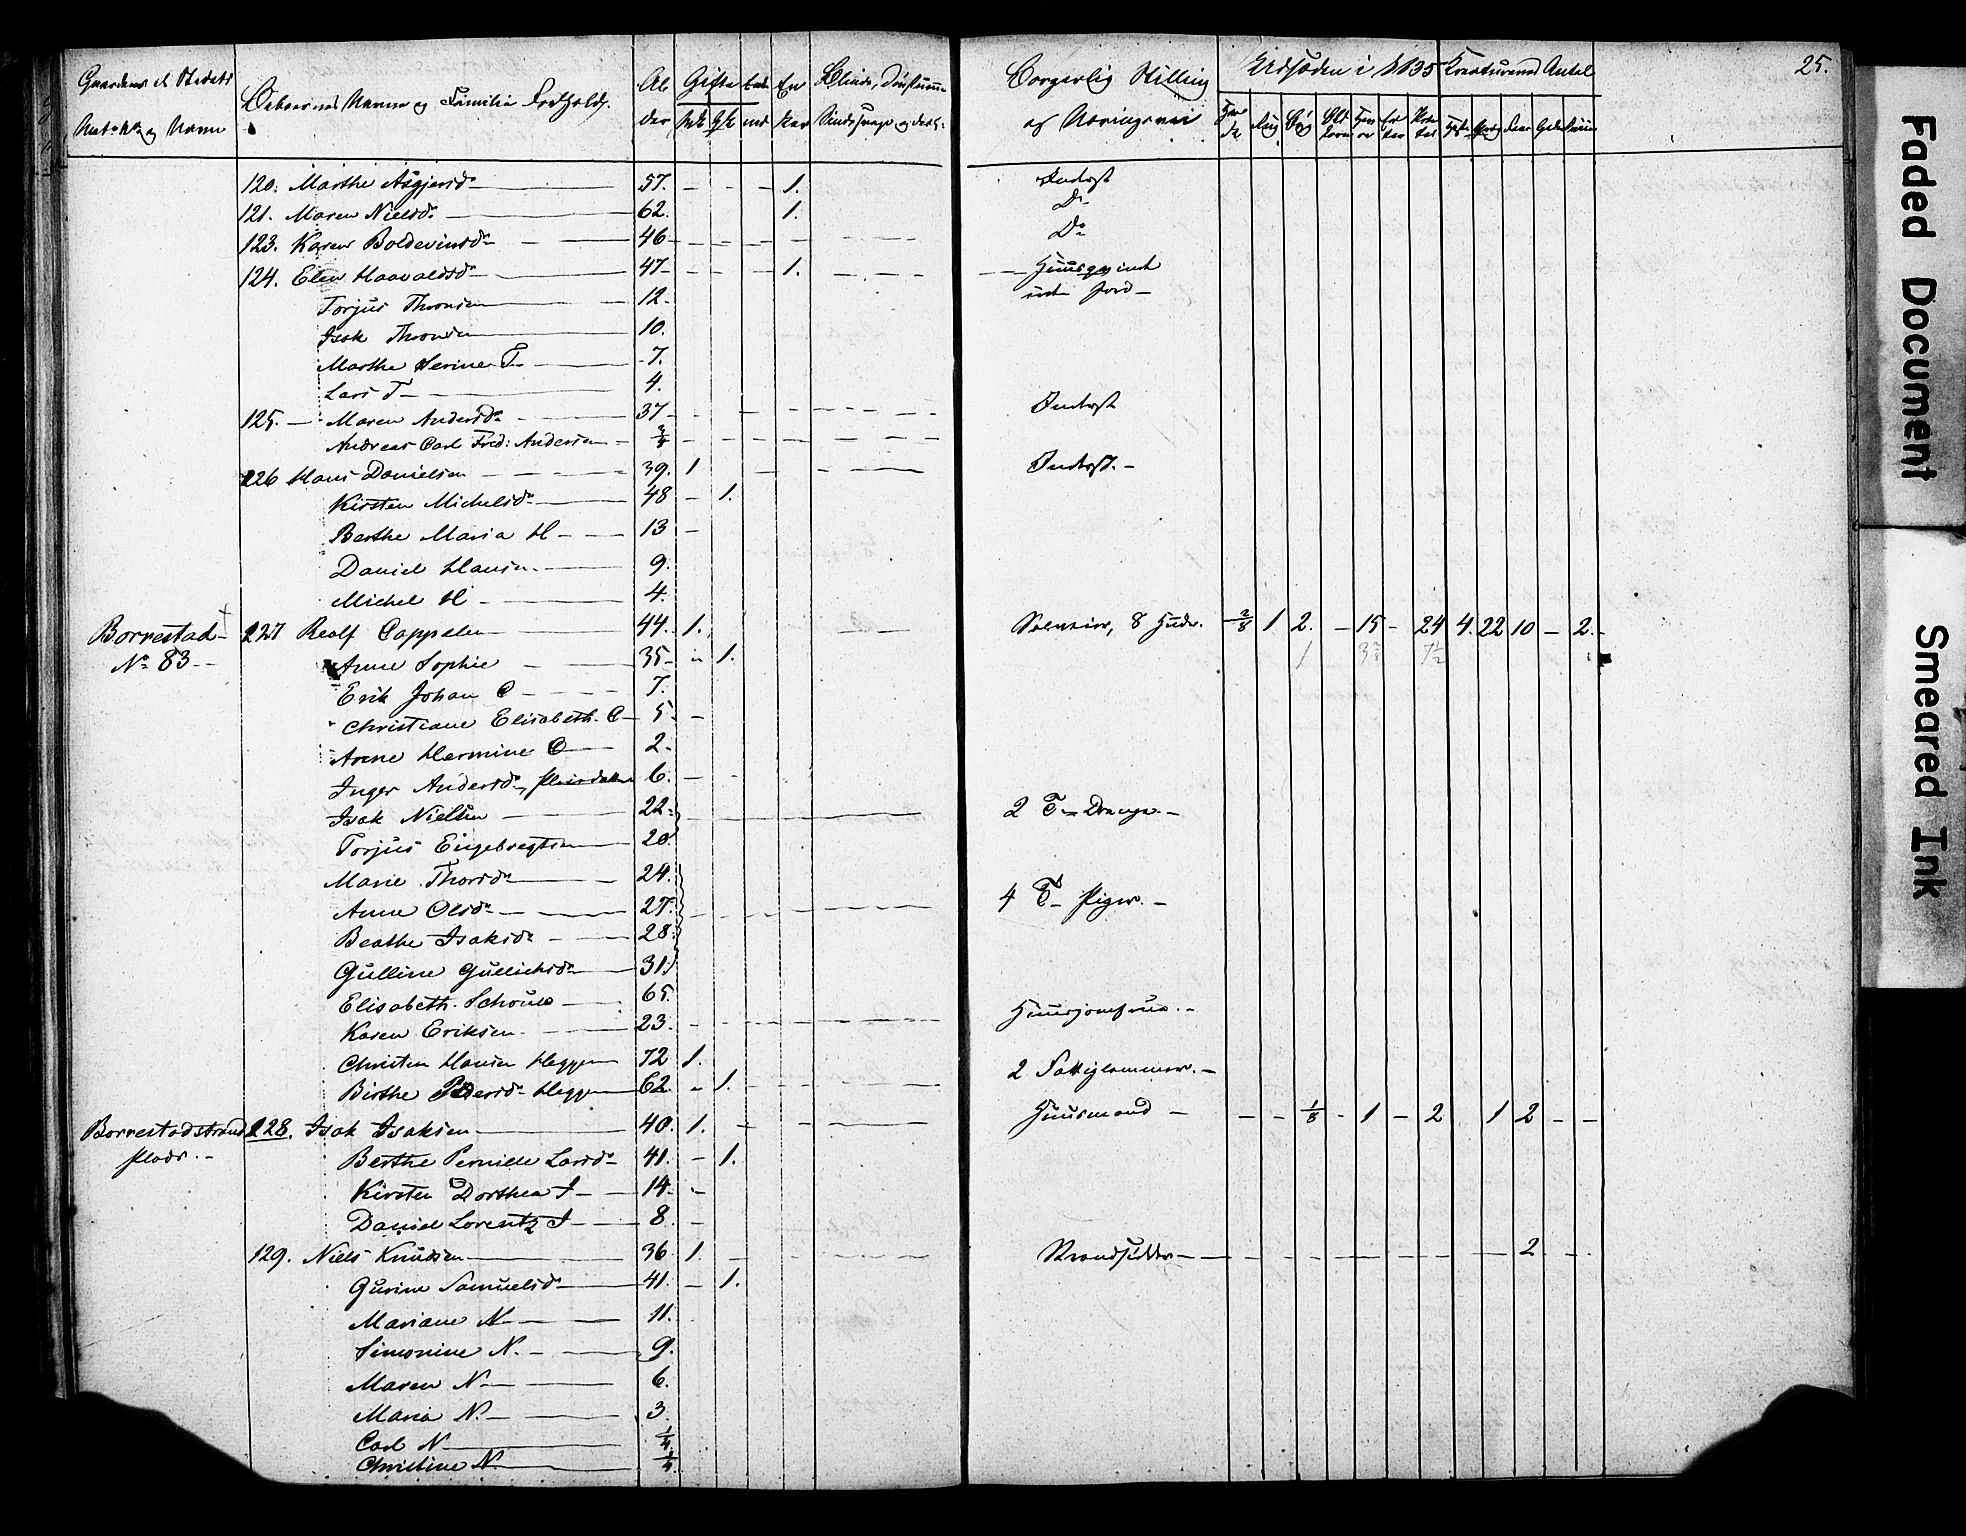 25.
Gaardens el Stedets Matr No og Navn
Beboernes Navne og Familie Forhold.
Alder
Gifte Mk Qk Enkemd Enker
Blinde, Døvstumme Sindssvage og desl:
Borgerlig Stilling og Næringsvei
Udsæden i 1835
Kreaturenes Antal
Rug Byg
120. Marthe Asgjersd 57. 1. Inderst
121. Maren Nielsd 62. 1. Do
123. Karen Boldevinsd 46 Do
124. Elen Haavoldsd 47 1. Huusqvinde
Torjus Thronsen 12. ud. Jord
Isak Thronsen 10.
Marthe Serine T. 7.
Lars T 4.
125. Maren Andersd 37 Inderst
Andreas Carl Fred: Andersen 3/4
126 Hans Danielsen 39. 1 Inderst.
Kirsten Michelsd 48 1.
Berthe Maria H 13
Daniel Hansen 9.
Michel H 4.
Borrestad 127 Realf Cappelen 44. 1. 8 Hude. 2/8 1 2. 15 24 4. 22 10 2.
No 83. Anne Sophie 35 1. 1 7½
Erik Johan C 7.
Christiane Elisabeth. C 5
Anne Hermine C 2.
Inger Andersd, Pleiedatter 6.
Isak Nielsen 22 2 T. Drenge.
Torjus Engebregtsen 20
Marie Thorsd 24.
Anne Olsd 27. 4 T. Piger.
Beathe Isaksd 28.
Gulline Gullichsd 31
Elisabeth. Schouw 65
Karen Eriksen. 23. Huusjomfrue.
Christen Hansen Heggen 72 1.
Birthe Pedersd Heggen 62. 1. 2 Fattiglemmer.
Borrestadstrand 128. Isak Isaksen 40. 1. Huusmand 1/8 1 2 1 2
Plads. Berthe Pernille Larsd 41. 1.
Kirsten Dorthea I 14.
Daniel Lorentz I 8
129. Niels Knudsen 36 1. Strandsidder 2
Gurine Samuelsd 41. 1.
Mariane N 11.
Simonine N. 9.
Maren N 6.
Maria N. 3.
Carl N 1/4
Christine N. 1/4
Faded Document
Smeared Ink